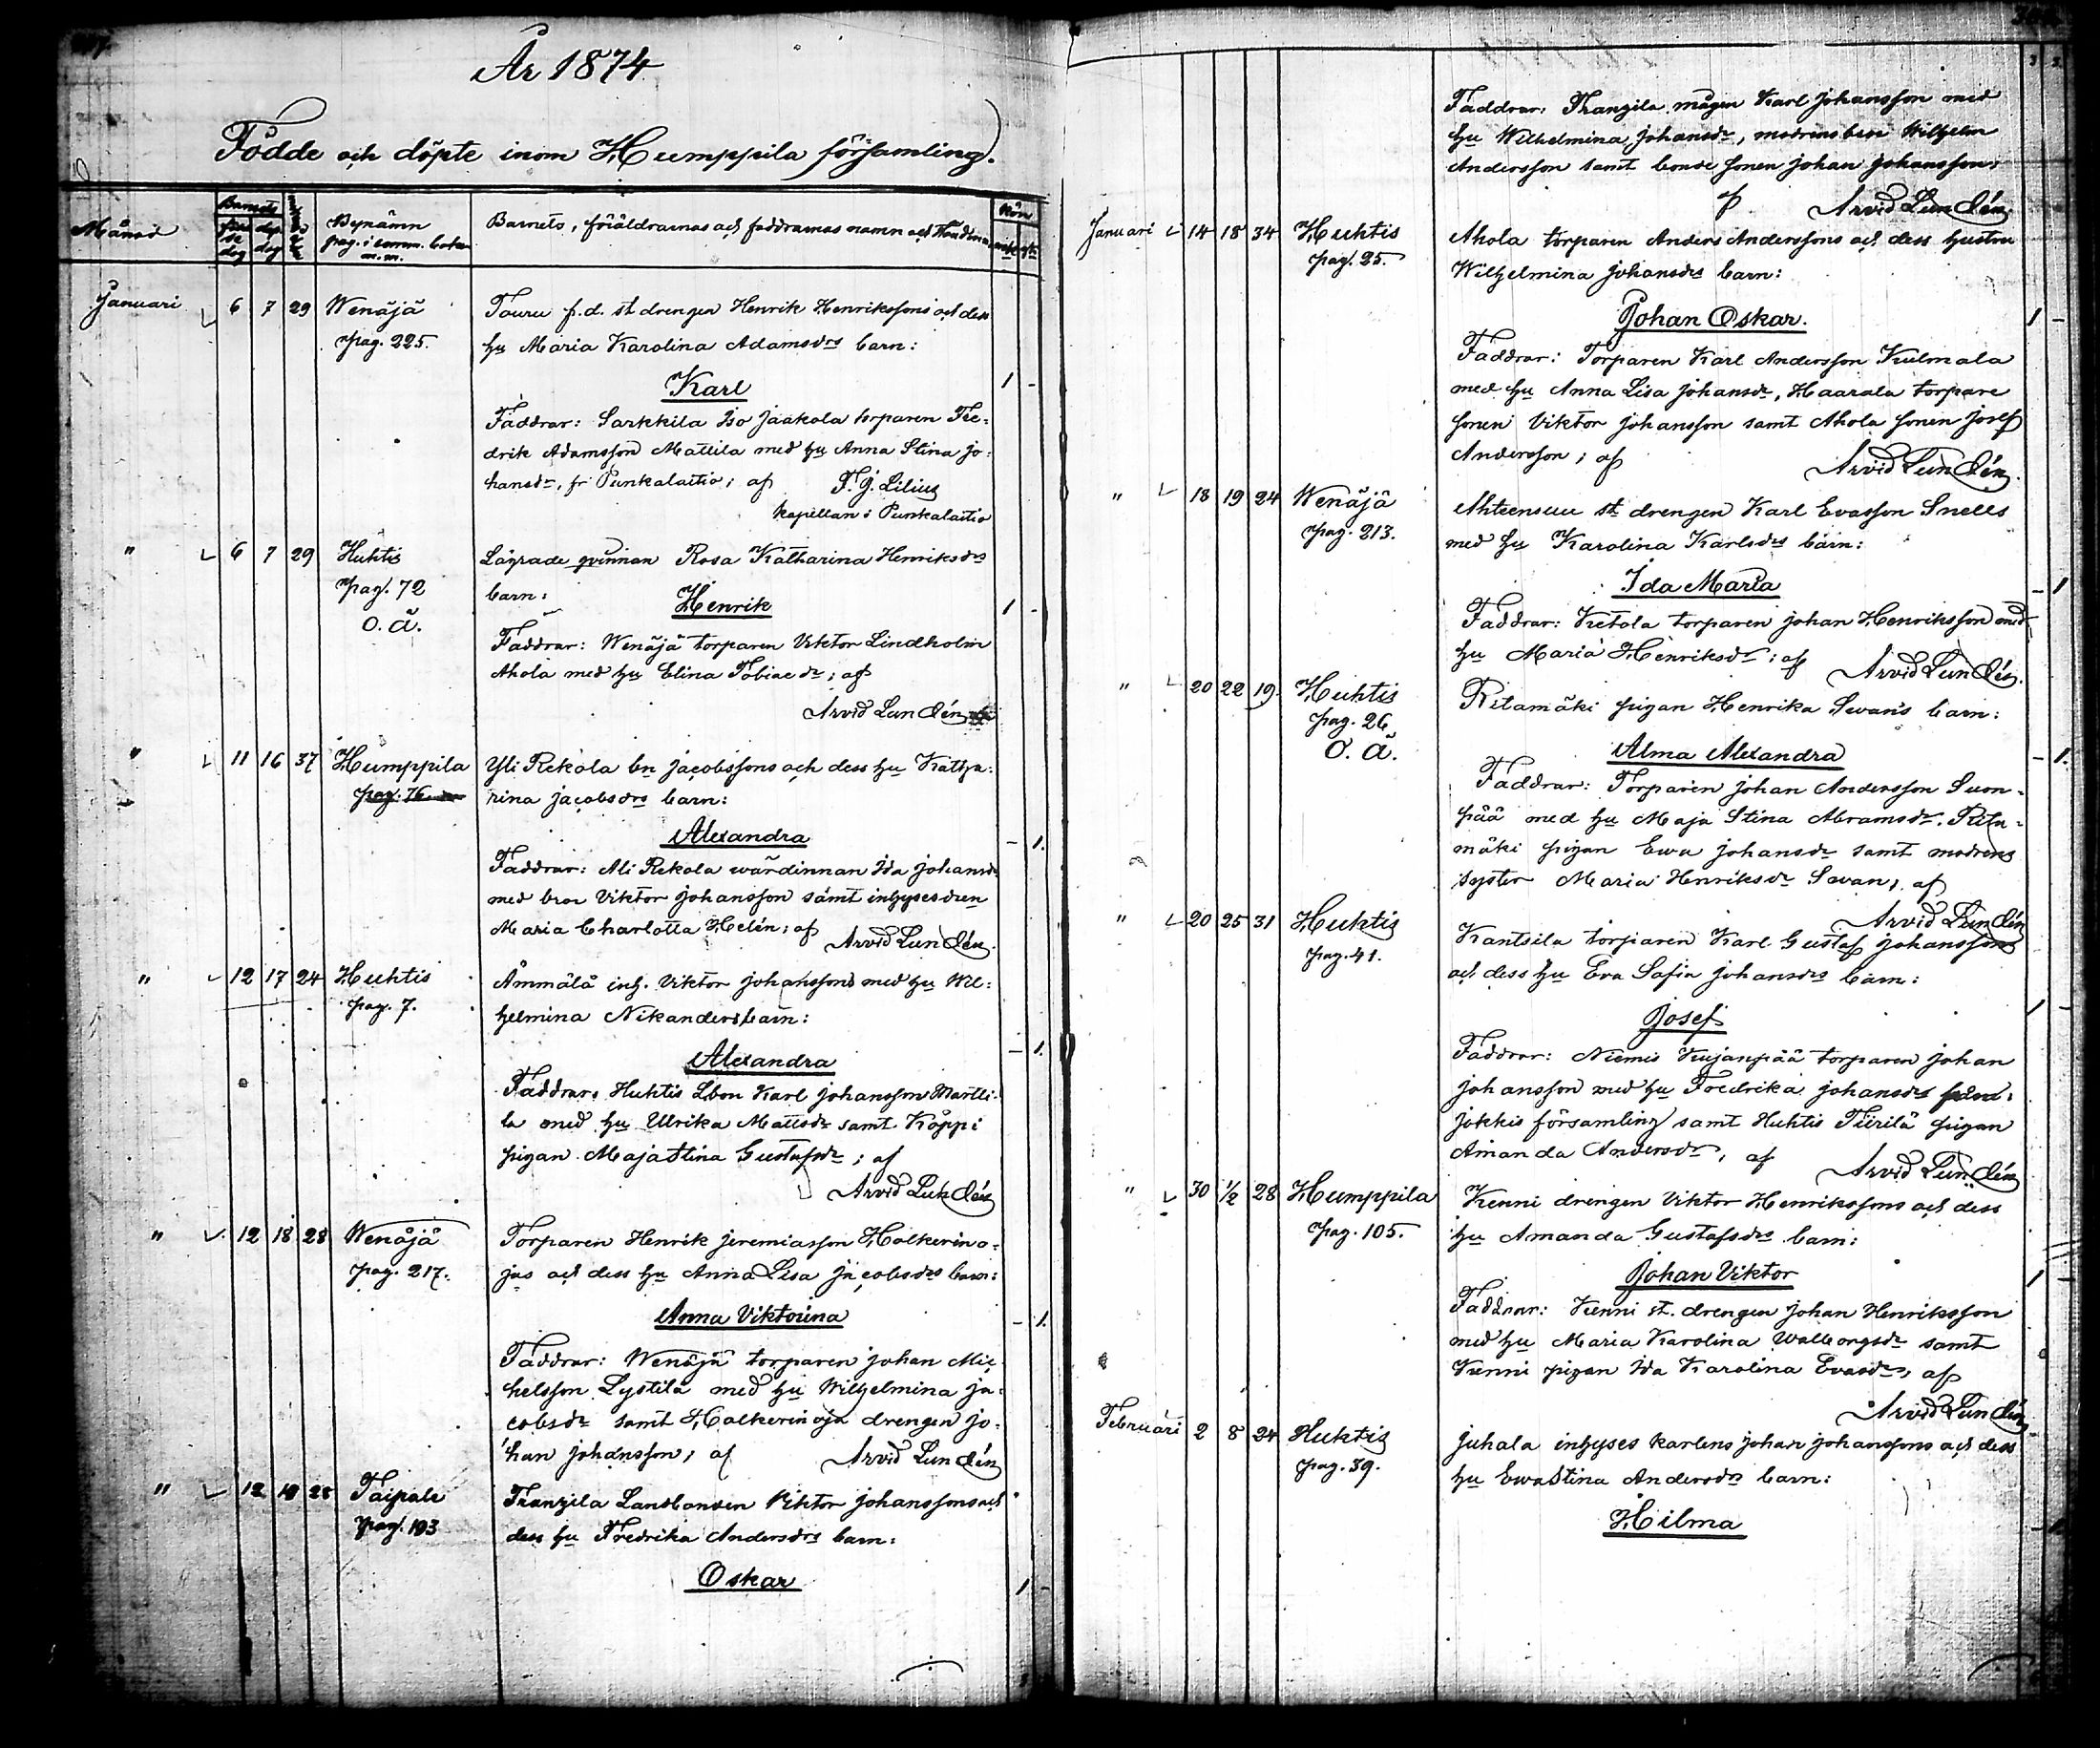 År 1874
Födde och döpte inom Humppila församling.
Månad
Barnets
födelsedag
döp. dag
Bynamn
pag. i comm. boken
m.m.
Barnets, föräldrarnas och faddrarnas namn och stånd
Kön
Januari 6 7 29 Wenäjä
pag. 225.
Tauru f.d. st drengen Henrik Henrikssons och dess
hu Maria Karolina Adamsdrs barn:
Karl 1 -
Faddrar: Sarkkila Iso Jaakola torparen Fre=
drik Adamsson Mattila med hu Anna Stina Jo=
hansdr, fr Punkalaitio; af F. G. Lilius
kapellan i Punkalaitio
" 6 7 29 Huhtis
pag. 72
o. ä.
Lägrade qvinnan Rosa Katharina Henriksdrs
barn: Henrik 1 -
Faddrar: Wenäjä torparen Viktor Lindholm
Ahola med hu Elina Tobiaedr; af
Arvid Lundén
" 11 16 37 Humppila
pag. 76
Yli Rekola bn Jacobssons och dess hu Katha=
rina Jacobsdrs barn:
Alexandra - 1.
Faddrar: Ali Rekola wärdinnan Ida Johansdr
med bror Viktor Johansson samt inhyses
Maria Charlotta Helén; af Arvid Lundén.
" 12 17 24 Huhtis
pag. 7.
Ämmälä inh. Viktor Johanssons med hu Wil=
helmina Nikanders barn:
Alexandra - 1.
Faddrar: Huhtis Lbon Karl Johansson Martti=
la med hu Ulrika Mattsdr samt Köppi
pigan Maja Stina Gustafsdr; af
Arvid Lundén
" 12 18 28 Wenäjä
pag. 217.
Torparen Henrik Jeremiasson Holkerino=
jas och dess hu Anna Lisa Jacobsdrs barn:
Anna Viktorina - 1.
Faddrar: Wenäjä torparen Johan Mic
helsson Lystilä med hu Wilhelmina Ja=
cobsdr samt Holkerinoja drengen Jo=
han Johansson; af Arvid Lundén
" 12 Taipale
pag. 193
Franzila Landbonden Viktor Johanssons och
dess hu Fredrika Andersdrs barn:
Oskar 1 -
Faddrar: Franzila mågen Karl Johansson med
hu Wilhelmina Johansdr, modrens bror Wilhelm
Andersson samt bonde sonen Johan Johansson;
af Arvid Lundén.
Januari 14 18 34 Huhtis
pag. 25.
Ahola torparen Anders Anderssons och dess hustru
Wilhelmina Johansdrs barn:
Johan Oskar. 1 -
Faddrar: Torparen Karl Andersson Kulmala
med hu Anna Lisa Johansdr, Haarala torpare
sonen Viktor Johansson samt Ahola sonen Josef
Andersson; af Arvid Lundén.
" 18 19 24 Wenäjä
pag. 213.
Ahteensuu st drengen Karl Evasson Snells
med hu Karolina Karlsdrs barn:
Ida Maria - 1
Faddrar: Ketola torparen Johan Henriksson med
hu Maria Henriksdr; af Arvid Lundén.
" 20 22 19 Huhtis
pag. 26
o. ä.
Ritamäki pigan Henrika Sevans barn:
Alma Alexandra - 1.
Faddrar: Torparen Johan Andersson Suon=
pää med hu Maja Stina Abramsdr. Rita=
mäki pigan Ewa Johansdr samt modrens
syster Maria Henriksdr Sevan; af
Arvid Lundén
" 20 25 31 Huhtis
pag. 41.
Kantsila torparen Karl Gustaf Johanssons
och dess hu Eva Sofia Johansdrs barn:
Josef 1 -
Faddrar: Niemis Kujanpää torparen Johan
Johansson med hu Fredrika Johansdr
Jokkis församling samt Huhtis Tiirilä pigan
Amanda Andersdr, af Arvid Lundén
" 30 1/2 28 Humppila
pag. 105.
Kenni drengen Viktor Henrikssons och dess
hu Amanda Gustafsdrs barn:
Johan Viktor 1 -
Faddrar: Kenni st. drengen Johan Henriksson
med hu Maria Karolina Walborgsdr samt
Kenni pigan Ida Karolina Evasdr, af
Arvid Lundén
Februari 2 8 24 Huhtis
pag. 39.
Juhala inhyses karlens Johan Johanssons och dess
hu Ewa Stina Andersdrs barn:
Hilma - 1